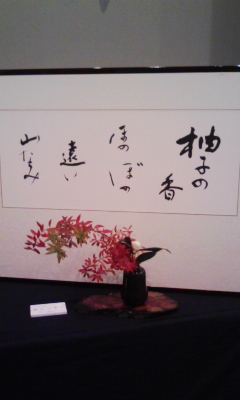 柚子の
香
ほのぼの
遠い
山なみ